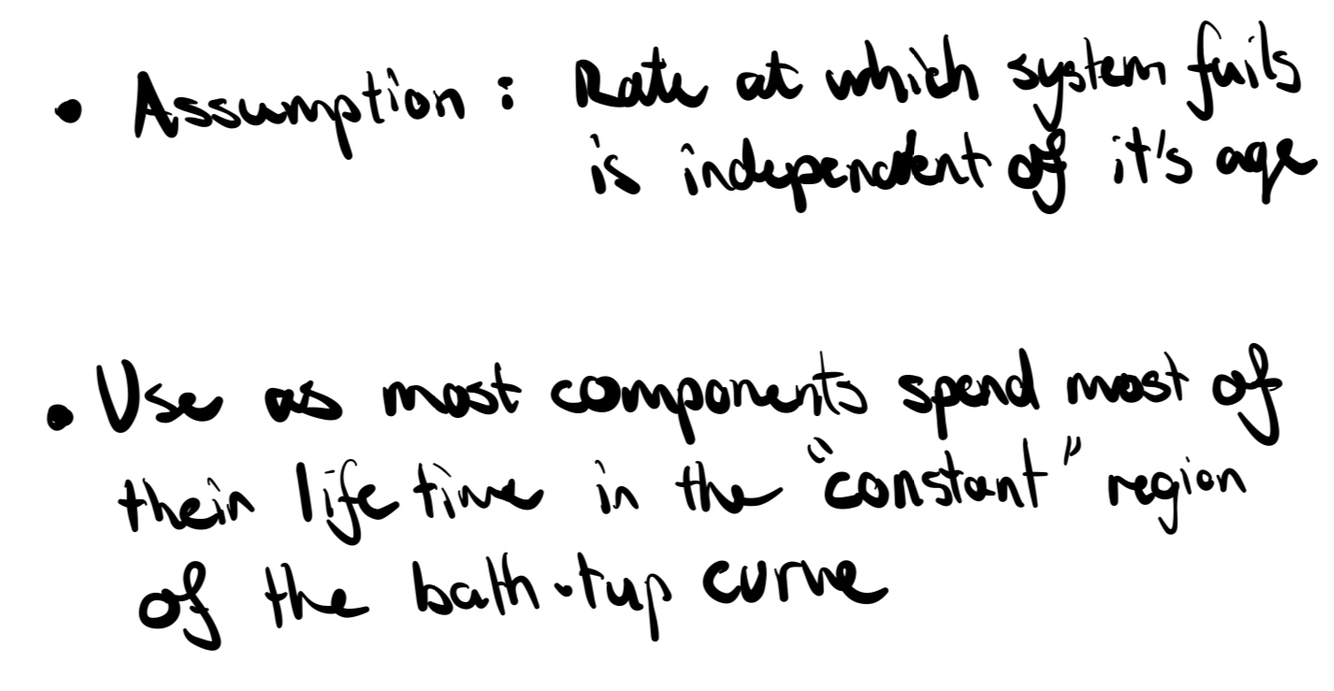 • Assumption : Rate at which system fails
is independent of it's age
• Use as most components spend most of
their life time in the "constant" region
of the bath-tup curve